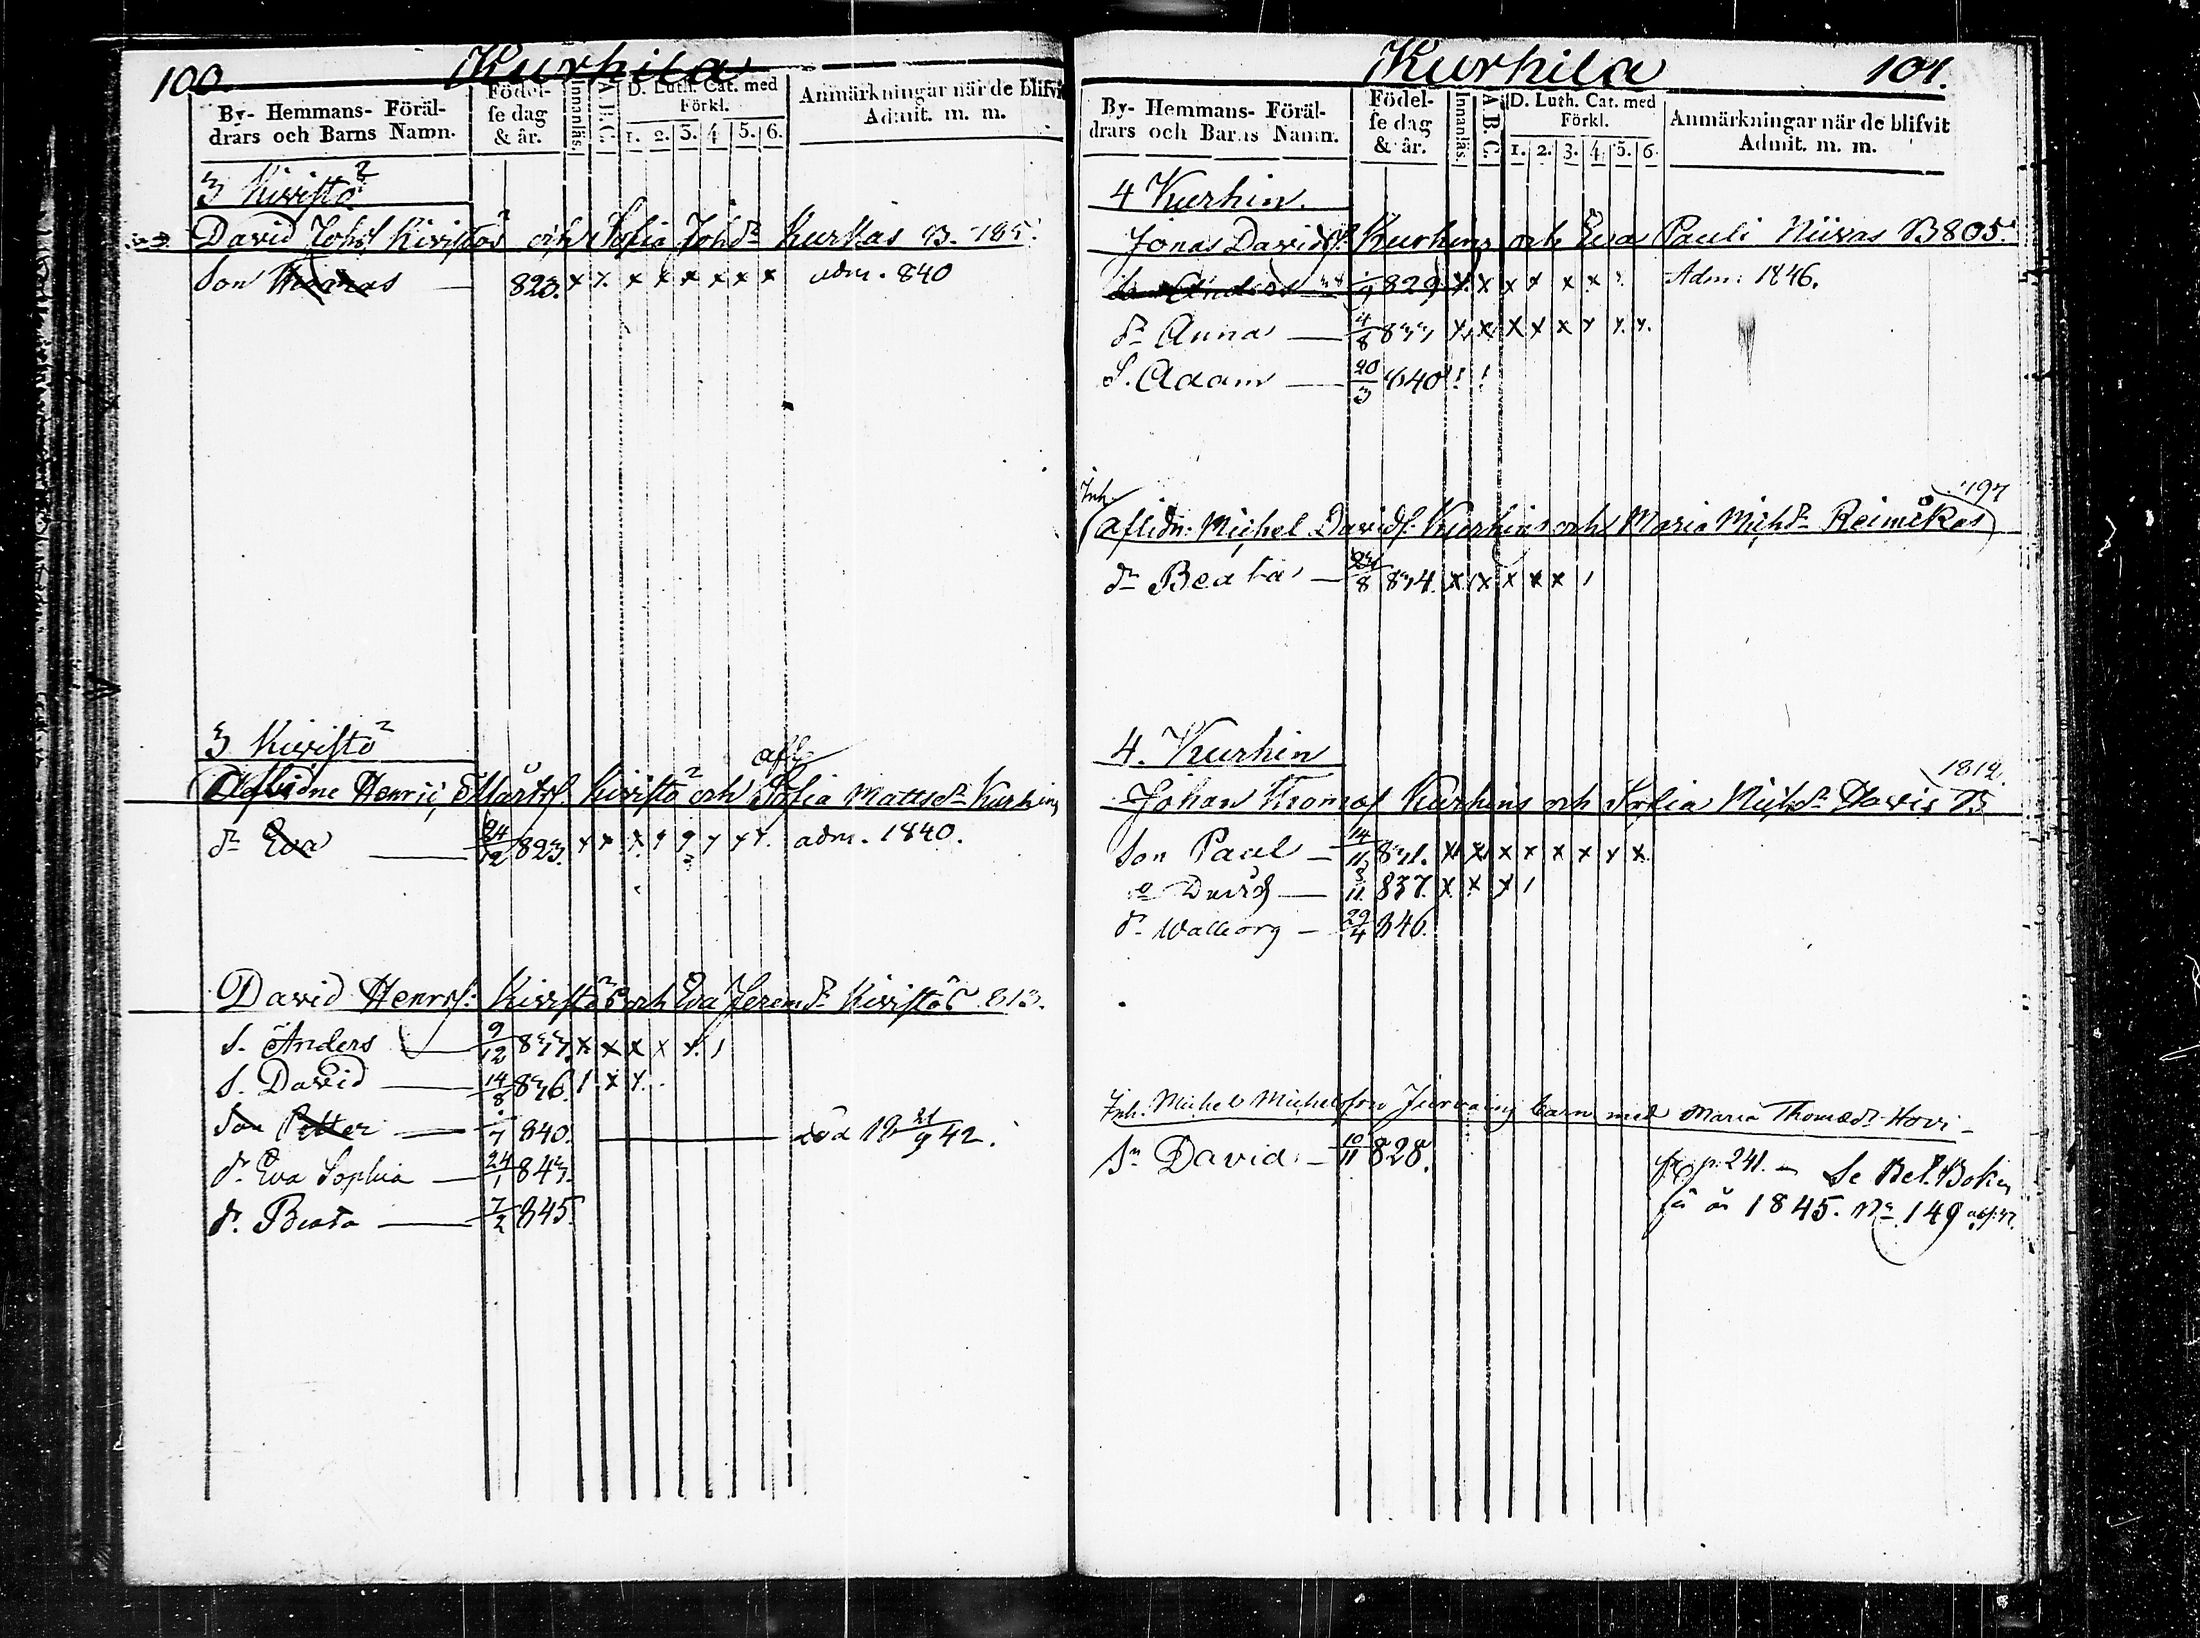 100. Kurhila
By- Hemmans- Föräl-
drars och Barns Namn.
Födel-
se dag
& år.
Innanläs.
A. B. C.
D. Luth. Cat. med
Förkl.
1. 2. 3. 4 5. 6.
Anmärkningar när de blifvit
Admit. m. m.
3 Kivistö
David Johs Kivistös och Sofia Johdr Kurkas B.
Son Thomas — 823. x x. x x x x x x adm. 840
3 Kivistö
afl.
Aflidne Henric Mårtss. Kivistö och Sofia Mattsdr Kurhins
dr Eva — 24/12 823. adm. 1840.
David Henrss: Kivistös och Eva Jeremdr Kivistö 813.
S. Anders — 9/12 833. x x x x x. ,
S. David — 14/8 836. 1 x x.
Son Petter — 7 840. — död 21/9 42.
dr Eva Sophia — 24/1 843.
dr. Beata — 7/2 845.
Kurhila 101.
By- Hemmans- Föräl-
drars och Barns Namn.
Födel-
se dag
& år.
Innanläs.
A. B. C.
D. Luth. Cat. med
Förkl.
1. 2. 3. 4. 5. 6.
Anmärkningar när de blifvit
Admit. m. m.
4 Kurhin.
Jonas Davids Kurhins och Eva Pauli Niivas B 805.
Anders 829 x. x x x x x Adm: 1846.
dr Anna — 4/8 833 x x x x x x x. x.
S. Adam — 20/3 840 ! !
Inh.
197
(aflidn: Michel Davids. Kurhins och Maria Michdr Reimikas)
dr Beata — 8 834. x x x x x ,
4. Kurhin
1812.
Johan Thomas Kurhins och Sofia Michdr Havis B
Son Paul — 14/11 831. x x x x x x x x.
David — 3/11 837. x x x 1
dr. Walborg — 29/4 846.
Inh: Michel Michelsson Jurvains barn med Maria Thomædr Hovi —
Sn David. — 10/11 828.
p. 241. — Se Bel. Boken
för år 1845. No 149